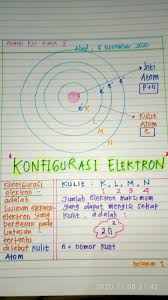 Ahad, 8 November 2020
Inti
Atom
P + n
K
L
M
N
Kulit
Atom
e
"KONFIGURASI ELEKTRON"
Konfigurasi
elektron
adalah
Susunan elektron
elektron yang
bergerak pada
lintasan
tertentu
disebut Kulit
Atom
KULIT : K, L, M, N
1 2 3 4
Jumlah elektron maksimum
yang dapat mengisi setiap
Kulit, adalah :
2n²
n = nomor kulit
halaman 1